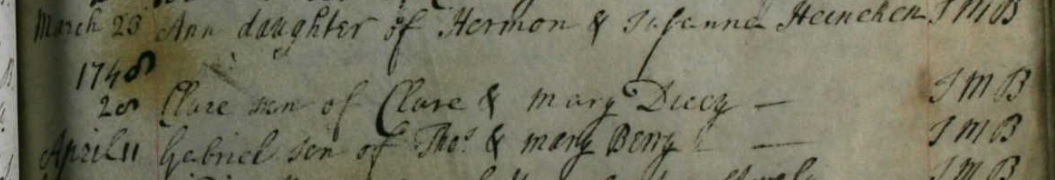 March 23 Ann daughter of Hermon & Susanna Heinchen I M B
1748
28 Clare son of Clare & mary Ducy — I M B
April 11 Gabriel son of Thos. & mary Berry — I M B
I M B